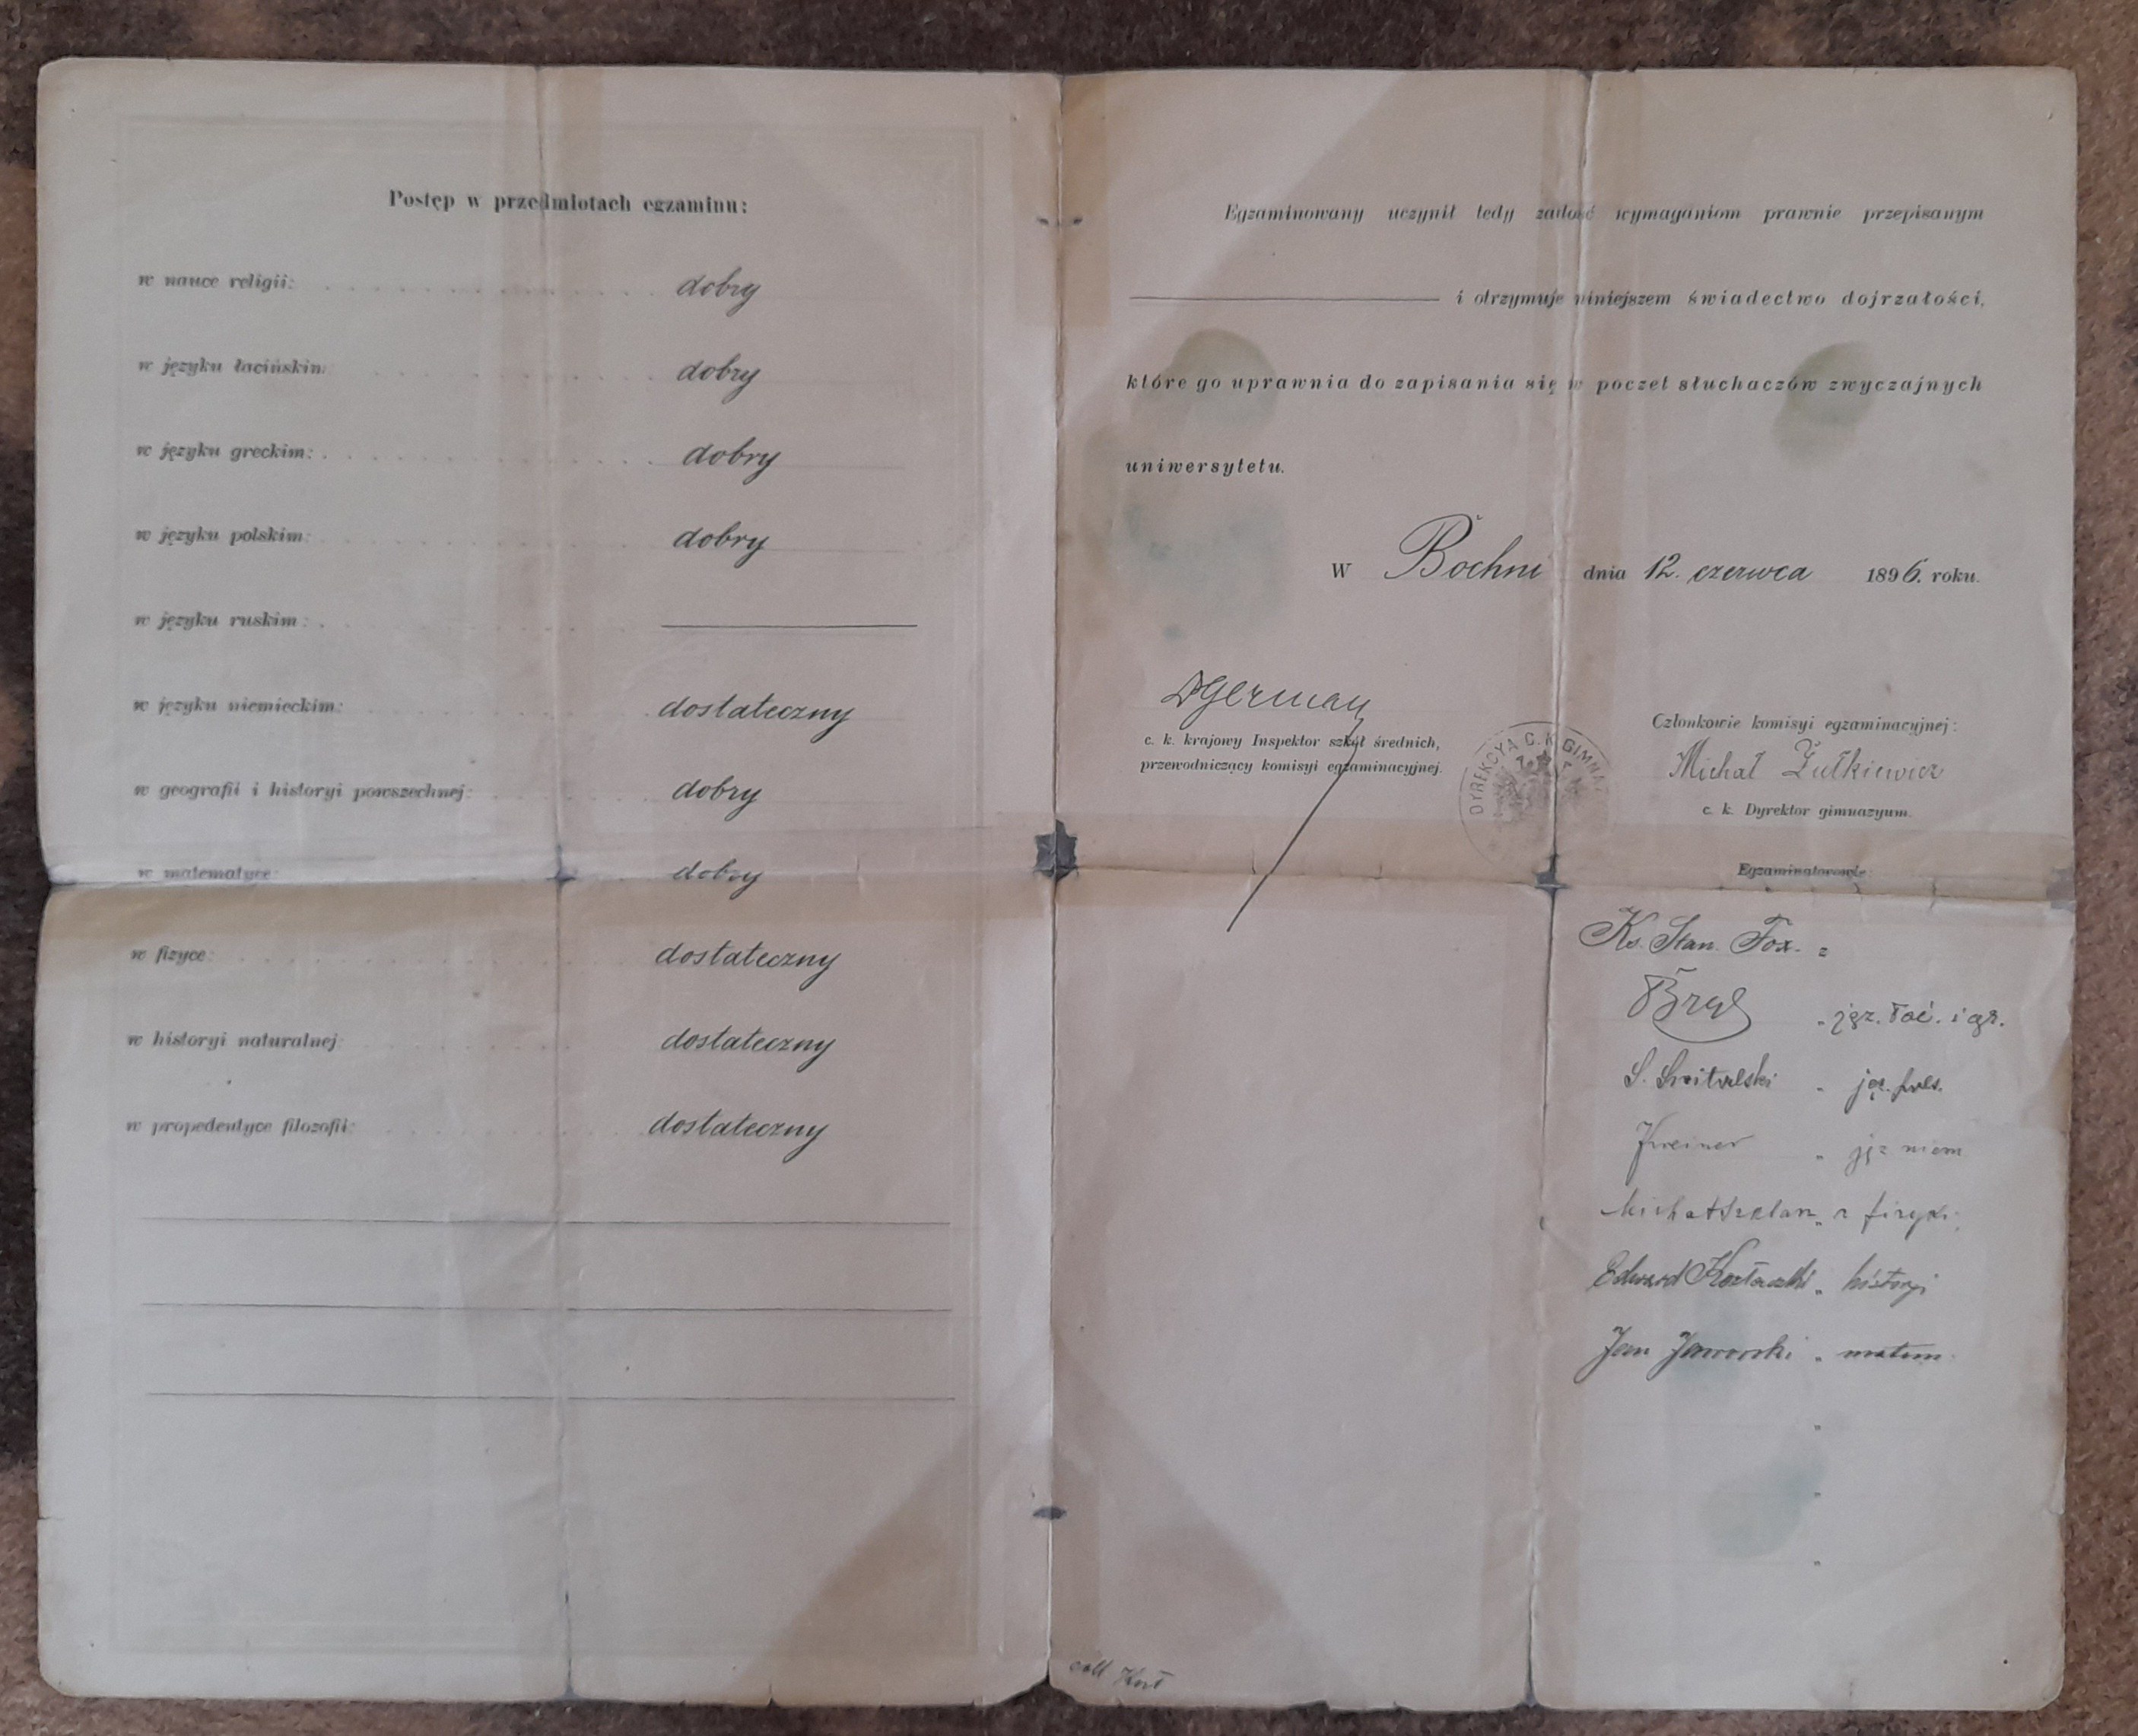 Postęp w przedmiotach egzaminu:
w nauce religii: dobry
w języku łacińskim: dobry
w języku greckim: dobry
w języku polskim: dobry
w języku ruskim:
w języku niemieckim: dostateczny
w geografii i historyi powszechnej: dobry
w matematyce: dobry
w fizyce: dostateczny
w historyi naturalnej: dostateczny
w propedeutyce filozofii: dostateczny
Egzaminowany uczynił tedy zadość wymaganiom prawnie przepisanym
i otrzymuje niniejszem świadectwo dojrzałości,
które go uprawnia do zapisania się w poczet słuchaczów zwyczajnych
uniwersytetu.
W Bochni dnia 12. czerwca 1896. roku.
German
c. k. krajowy Inspektor szkół średnich,
przewodniczący komisyi egzaminacyjnej.
DYREKCYA C. K. GIMNA
Członkowie komisyi egzaminacyjnej:
Michał Żułkiewicz
c. k. Dyrektor gimnazyum.
Egzaminatorowie
Ks. Stan. Fox. =
Bryl " jęz. łać. i gr.
S. " jęz. pols.
" jęz niem
" z fizyki
Edward " historyi
Jan Jaworski " matem.
"
"
"